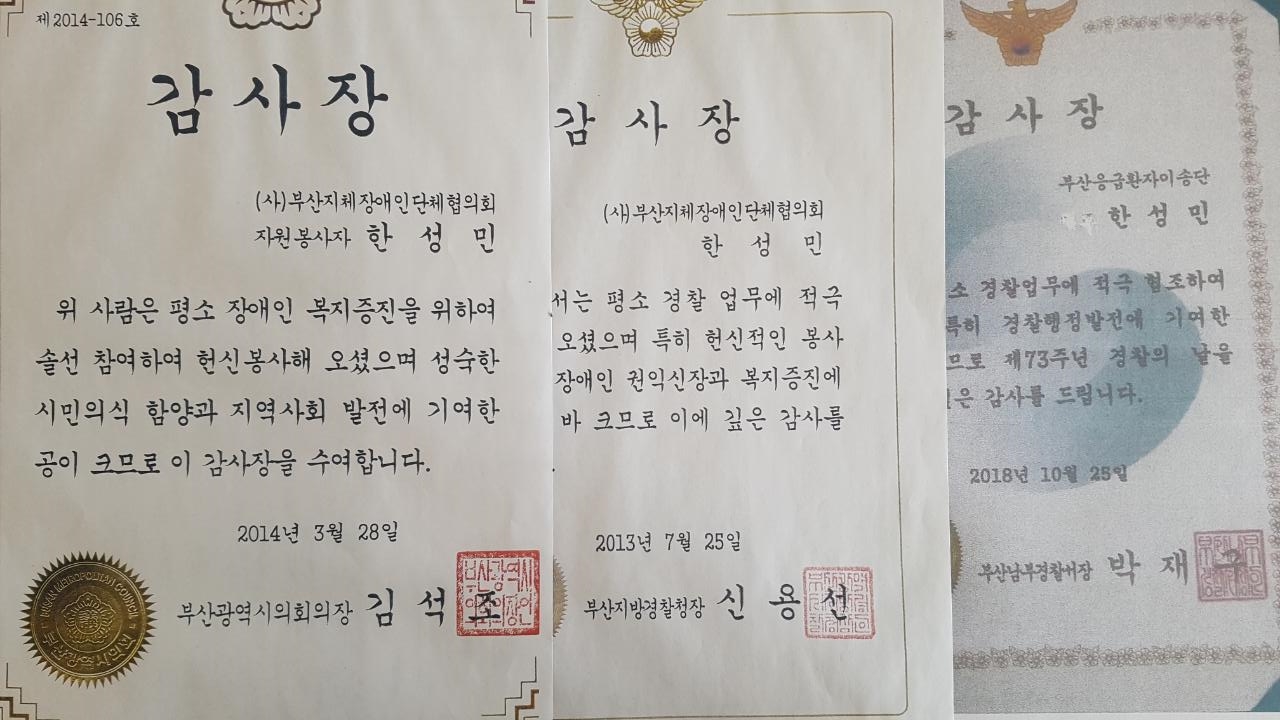 제 2014-106 호
감 사 장
(사)부산지체장애인단체협의회
자원봉사자 한 성 민
위 사람은 평소 장애인 복지증진을 위하여
솔선 참여하여 헌신봉사해 오셨으며 성숙한
시민의식 함양과 지역사회 발전에 기여한
공이 크므로 이 감사장을 수여합니다.
2014년 3월 28일
부산광역시의회의장 김 석 조
감 사 장
(사)부산지체장애인단체협의회
한 성 민
서는 평소 경찰 업무에 적극
오셨으며 특히 헌신적인 봉사
장애인 권익신장과 복지증진에
바 크므로 이에 깊은 감사를
2013년 7월 25일
부산지방경찰청장 신 용 선
감 사 장
부산응급환자이송단
한 성 민
소 경찰업무에 적극 협조하여
특히 경찰행정발전에 기여한
므로 제73주년 경찰의 날을
은 감사를 드립니다.
2018년 10월 25일
부산남부경찰서장 박 재 구